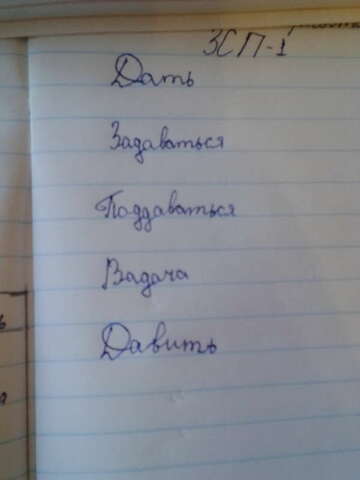 ЗСП-1
Дать
Задаваться
Поддаваться
Задача
Давить